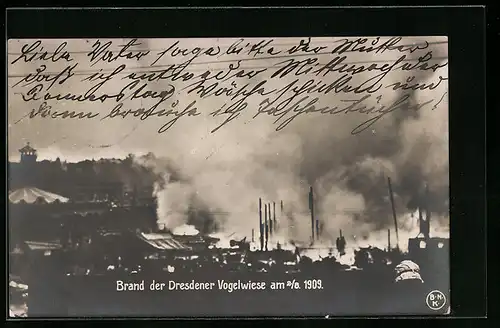 Liebe Vater sage bitte der Mutter
daß ich entweder Mittwoch oder
Donnerstag Wäsche schicken und
dann brauche ich Taschentücher!
Brand der Dresdener Vogelwiese am 2/8. 1909.
B·N
K·